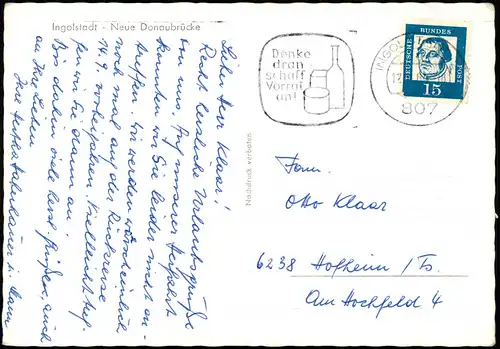 Ingolstadt - Neue Donaubrücke
Lieber Herr Klaar!
Recht herzliche Urlaubsgrüße
von uns. Auf unserer Herfahrt
konnten wir Sie leider nicht an-
treffen. Wir werden wahrscheinlich
noch mal auf der Rückreise
14.9. vorbeifahren. Vielleicht tref-
fen wir Sie dann an.
Bis dahin viele herzl. Grüße, auch
an Ihre lieben
Ihre
Nachdruck verboten
Denke
dran
schaff
Vorrat
an!
INGOL
807
DEUTSCHE
BUNDES
POST
15
Herrn
Otto Klaar
6238 Hofheim / Ts.
Am Hochfeld 4